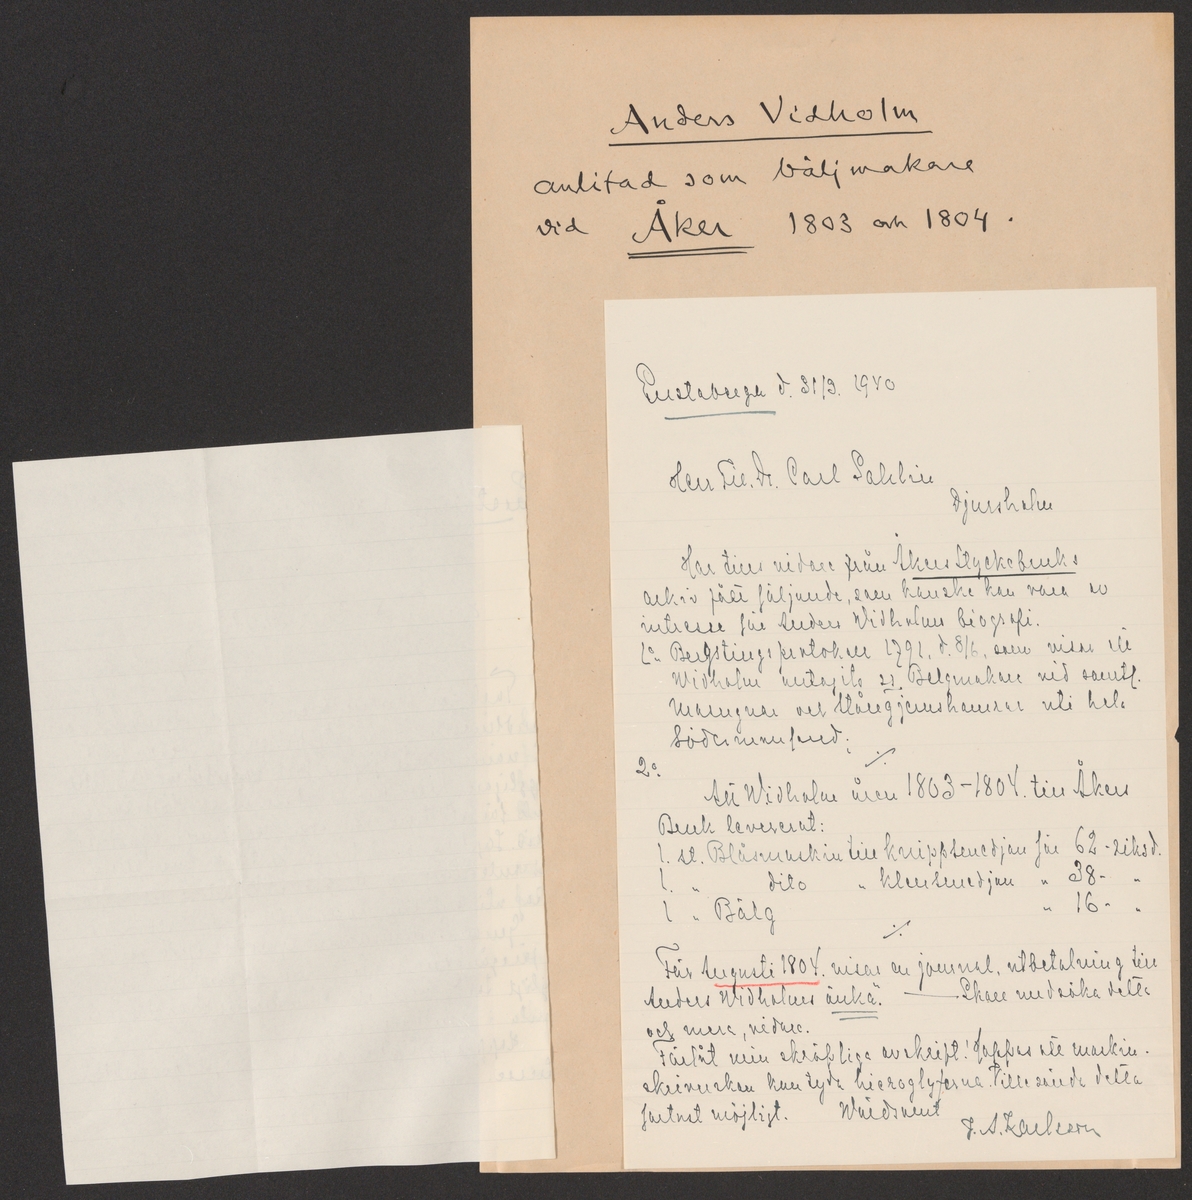 Anders Vidholm
anlitad som bäljmakare
vid Åker 1803 och 1804.
d. 31/3. 1940
Herr Fil. Dr. Carl Sahlin
Djursholm
Har tills vidare från Åkers Styckebruks
arkiv fått följande, som kanske kan vara av
intresse för Anders Widholms biografi.
1o Bergstingsprotokoll 1791, d. 8/6, som visar att
Widholm antagits som Belgmakare vid samtl.
Masugnar och Stångjernshamrar uti hela
Södermanland;
2o
Att Widholm åren 1803-1804. till Åkers
Bruk levererat:
1. st. Blåsmaskin till knippsmedjan för 62- riksd.
1. " dito " klensmedjan " 38- "
1 " Bälg " 16- "
För Augusti 1804. visar en journal, utbetalning till
Anders Widholms änka. Skall undsöka detta
och mera, vidare.
Förlåt min skröpliga avskrift! Hoppas att maskin-
skriverskan kan tyda hieroglyferna. Tillsända detta
fortast möjligt. Vördsamt